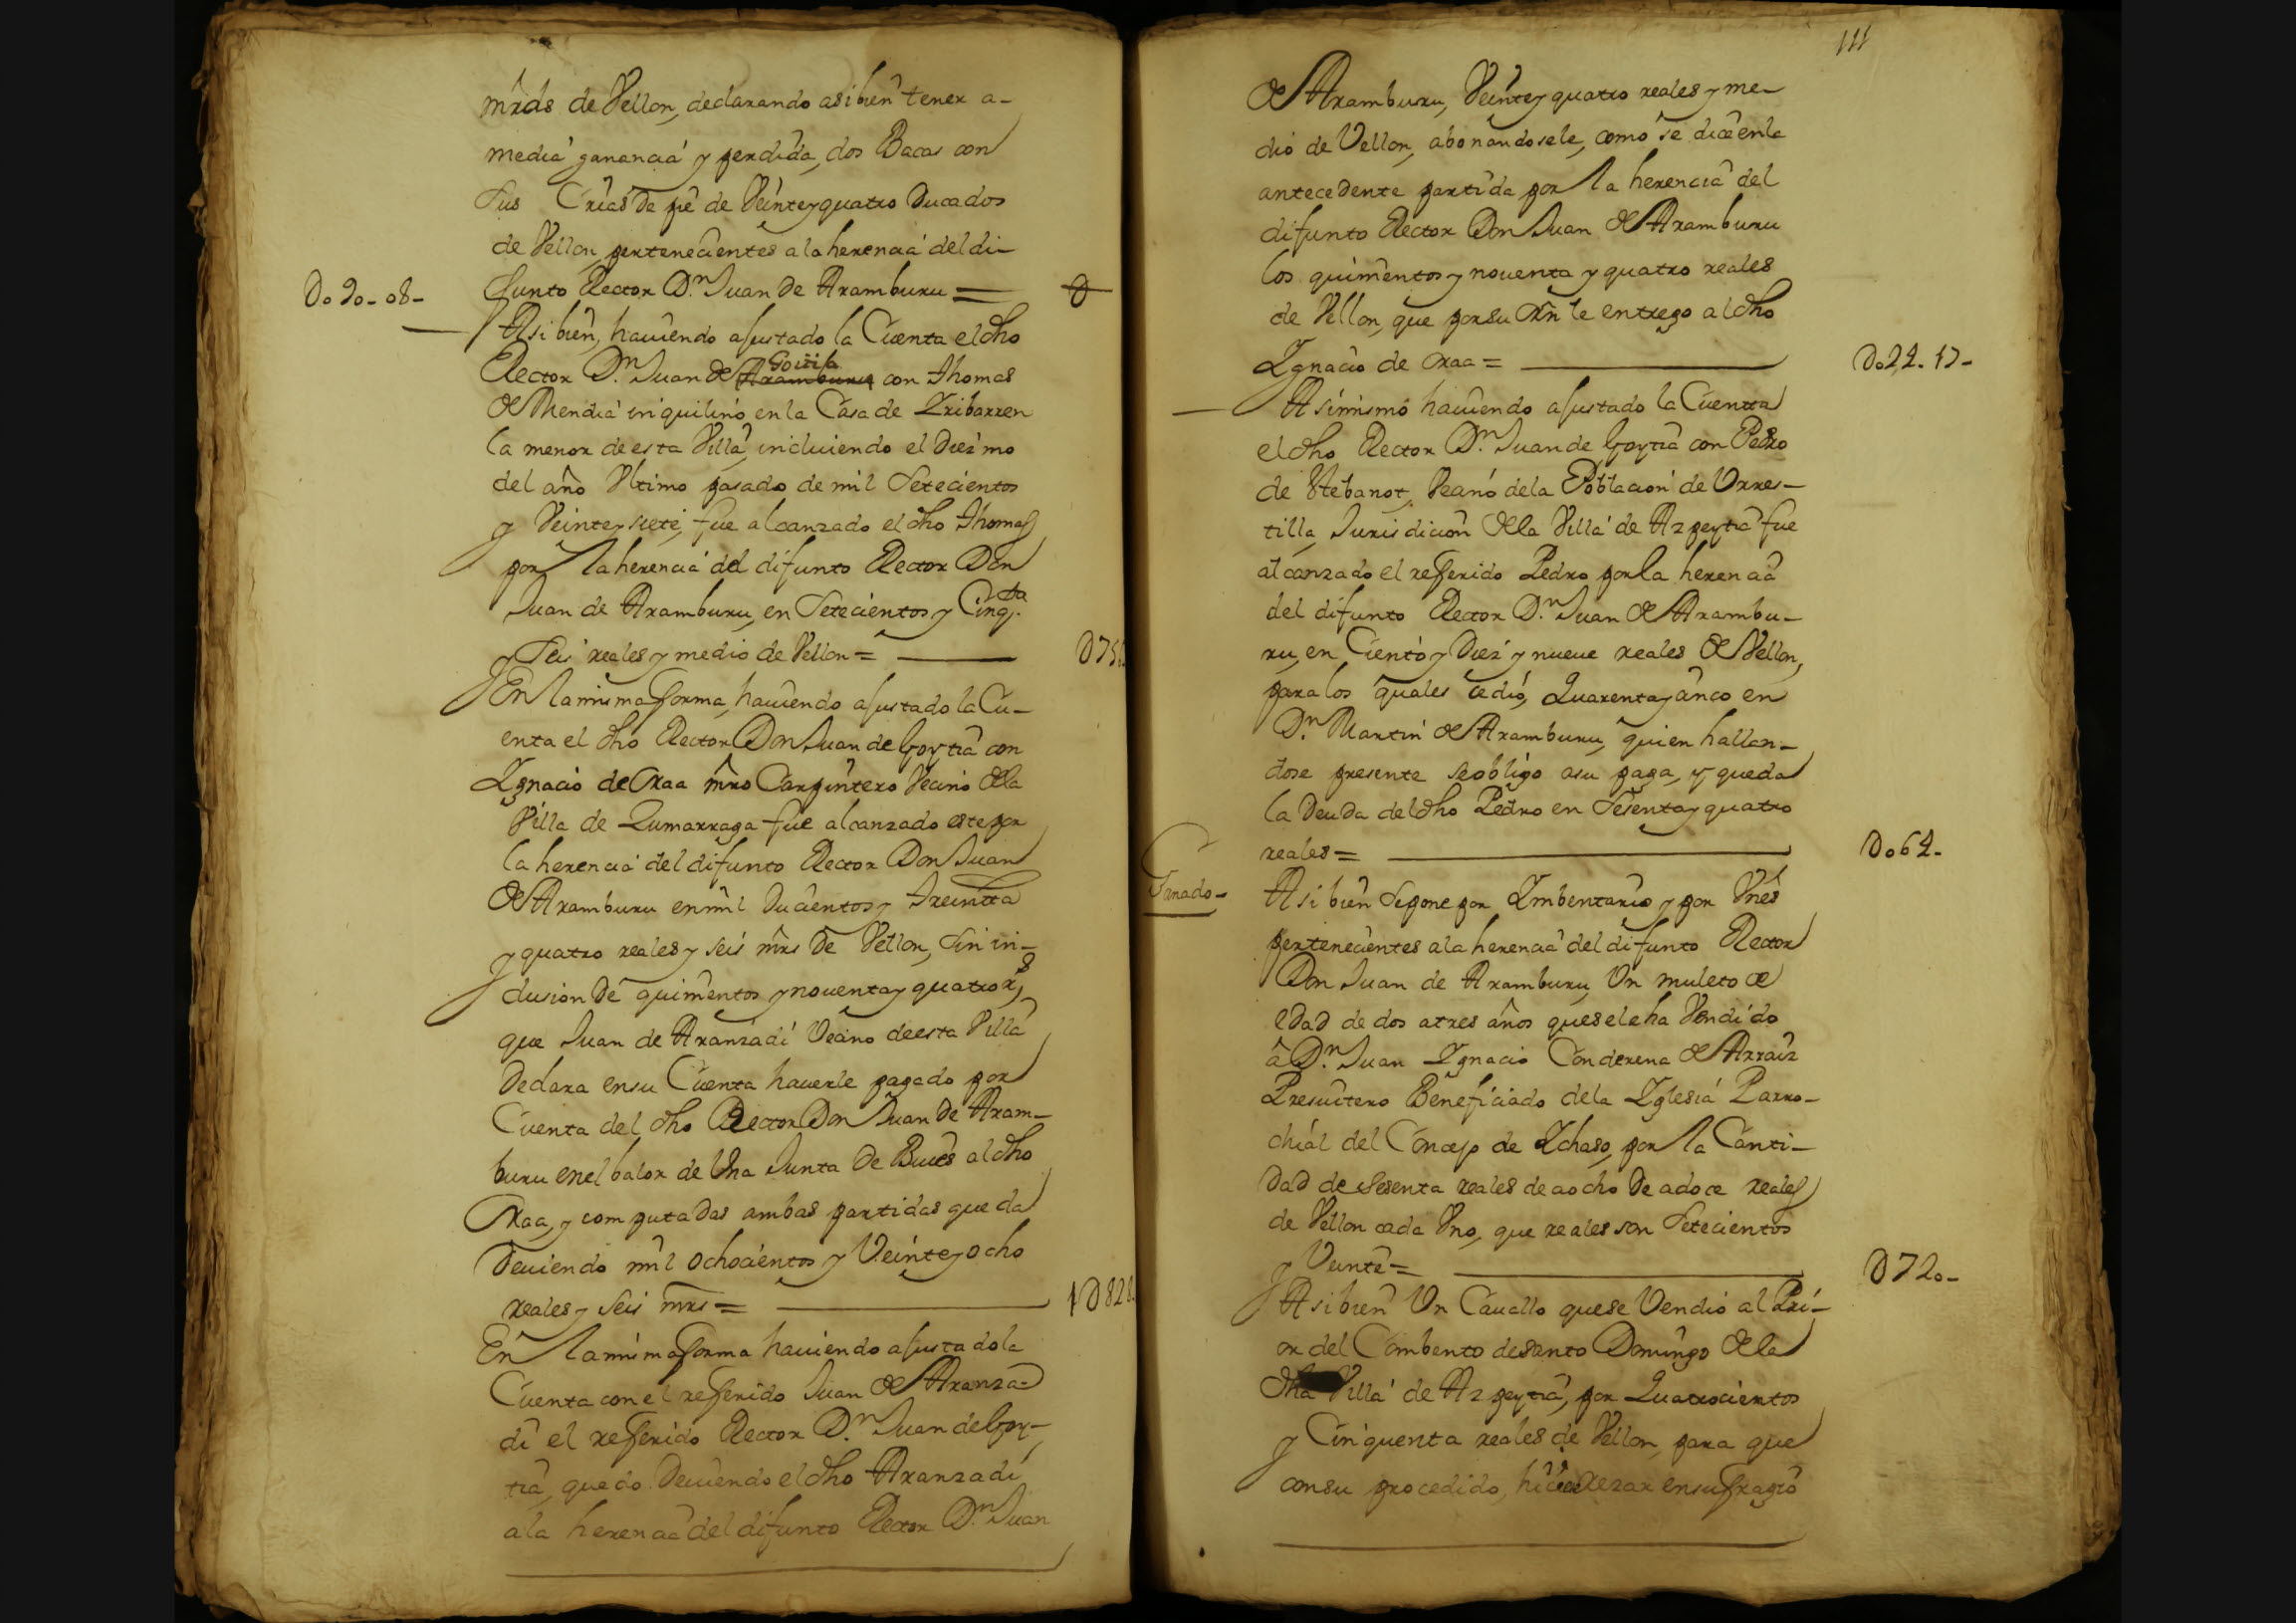 mrãs de Vellon, declarando asibien tener a-
media ganancia y perdida, dos Bacas con
sus Crias De pie de Veinte y quatro Ducados
de Vellon, pertenecientes a la herencia del di-
Do90-08- funto Rector D.n Juan de Aramburu =
Asi bien, haviendo ajustado la Cuenta el dho
Rector D.n Juan de Goitia Aramburu con Thomas
de Mendia inquilino en la Casa de Iribarren
la menor de esta Villa, incluiendo el Diezmo
del año Ultimo pasado de mil Setecientos
y Veinte y siete, fue alcanzado el dho Thomas
por la herencia del difunto Rector Don
Juan de Aramburu, en Setecientos y Cinq.ta
y Seis reales y medio de Vellon = D756
En la misma forma, haviendo ajustado la Cu-
enta el dho Rector Don Juan de Goytia con
Ignacio de Oraa mro Carpintero Vecino de la
Villa de Zumarraga fue alcanzado este por
la herencia del difunto Rector Don Juan
de Aramburu en mil Ducientos y Treintta
y quatro reales y seis mrs De Vellon, sin in-
clusion De quinientos y noventa y quatro r.s
que Juan de Aranzadi Vecino de esta Villa
Declara en su Cuenta haverle pagado por
Cuenta del dho Rector Don Juan De Aram-
buru en el balor de Una Junta De Bueis al dho
Oraa, y computadas ambas partidas queda
Deviendo mil ochocientos y Veinte y ocho
reales y seis mrs = 1D828
En la misma forma haviendo ajustado la
Cuenta con el referido Juan de Aranza-
di el referido Rector D.n Juan de Goy-
tia, quedo Deviendo el dho Aranzadi
a la herencia del difunto Rector D.n Juan
111
de Aramburu, Veinte y quatro reales y me-
dio de Vellon, abonandosele, como se dice en la
antecedente partida por la herencia del
difunto Rector Don Juan de Aramburu
los quinientos y noventa y quatro reales
de Vellon, que por su orñ le entrego al dho
Ignacio de Oraa = Do24.17-
Asimismo haviendo ajustado la Cuentta
el dho Rector D.n Juan de Goytia con Pedro
de Vecino de la Poblacion de Urres-
tilla, Jurisdicion de la Villa de Azpeytia fue
alcanzado el referido Pedro por la herencia
del difunto Rector D.n Juan de Arambu-
ru, en Ciento y Diez y nueve reales de Vellon,
para los quales cedió, Quarenta y cinco en
D.n Martin de Aramburu, quien hallan-
dose presente se obligo a su paga, y queda
la Deuda del dho Pedro en Sesenta y quatro
reales = Do64-
Ganado- Asi bien se pone por Imbentario y por Vnes
pertenecientes a la herencia del difunto Rector
Don Juan de Aramburu, Un muleto de
edad de dos a tres años que se le ha Vendido
â D.n Juan Ignacio Conderena de Arraiz
Presvitero Beneficiado de la Iglesia Parro-
chial del Concejo de Ichaso, por la Canti-
dad de Sesenta reales de a ocho De a doce reales
de Vellon cada Vno, que reales son Setecientos
y Veinte = D720-
Asi bien Un Cavallo que se Vendio al Pri-
or del Combento de Santo Domingo de la
dha Villa de Azpeytia, por Quatrocientos
y Cinquenta reales de Vellon, para que
con su procedido, hiciese Rezar en sufragio